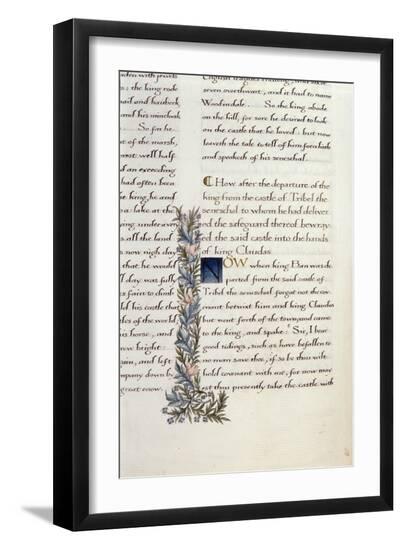 aden with privets
the king rode
and haubeck
and his
So far he
of the marsh,
most well half
d an exceeding
had often been
the king, he and
a lake at the
ying underever
all the land
now nigh day
that he would
ll day was fully
fair to climb
ld his castle that
tles of the world
his horse, and
ew bright
ain, and left
mpany down by
great
English leagues
seven overthwart, and it had to name
Woodindale. So the king abode
on the hill, for sore he desired to look
on the castle that he loved: but now
leaveth the tale to tell of him forawhile
and speaketh of his seneschal.
How after the departure of the
king from the castle of Tribel the
seneschal to whom he had deliver
ed the safeguard thereof bewray
ed the said castle into the hands
of king Claudas
NOW when king Ban was de
parted from the said castle of
Tribel the seneschal forgat not the cov
enant betwixt him and king Claudas
but went forth of the town, and came
to the king, and spake: Sir, I bear
good tidings, such as have befallen to
no man save thee, if so be thou wilt
hold covenant with me, for now may
st thou presently take the castle with